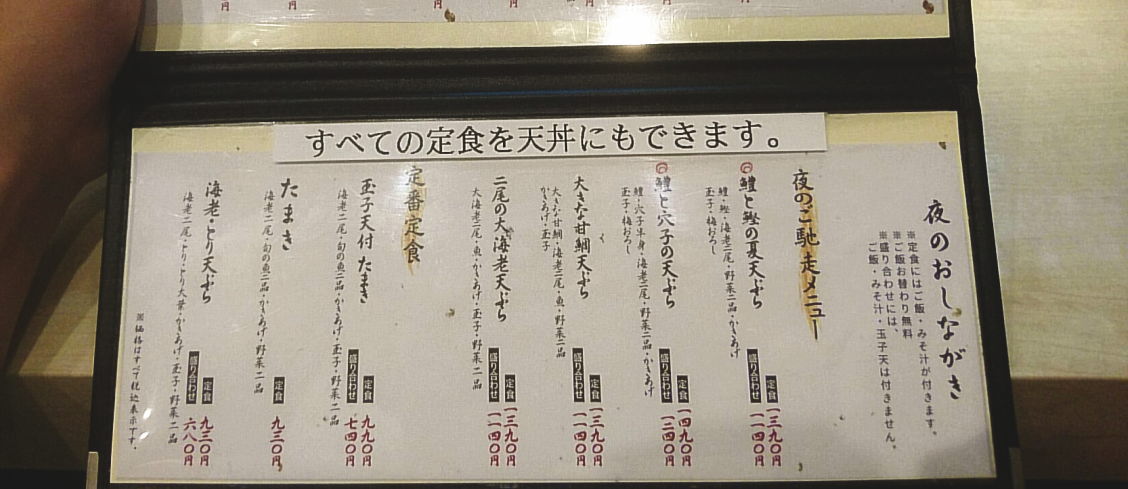 すべての定食を天丼にもできます。
夜のおしながき
※定食にはご飯・みそ汁が付きます。
※ご飯お替わり無料
※盛り合わせには、
ご飯・みそ汁・玉子天は付きません。
夜のご馳走メニュー
鱧と鰹の夏天ぷら
鱧・鰹・海老二尾・野菜二品・かきあげ
玉子・梅おろし
定食 一三九〇円
盛り合わせ 一一四〇円
鱧と穴子の天ぷら
鱧・穴子半身・海老二尾・野菜二品・かきあげ
玉子・梅おろし
定食 一四九〇円
盛り合わせ 一二四〇円
大きな甘鯛天ぷら
大きな甘鯛・海老二尾・魚・野菜二品
かきあげ・玉子
定食 一三九〇円
盛り合わせ 一一四〇円
二尾の大海老天ぷら
大海老二尾・魚・かきあげ・玉子・野菜二品
定食 一三九〇円
盛り合わせ 一一四〇円
定番定食
玉子天付 たまき
海老二尾・旬の魚二品・かきあげ・玉子・野菜二品
定食 九九〇円
盛り合わせ 七四〇円
たまき
海老二尾・旬の魚二品・かきあげ・野菜二品
定食 九三〇円
海老・とり天ぷら
海老二尾・とり・とり大葉・かきあげ・玉子・野菜二品
定食 九三〇円
盛り合わせ 六八〇円
※価格はすべて税込表示です。